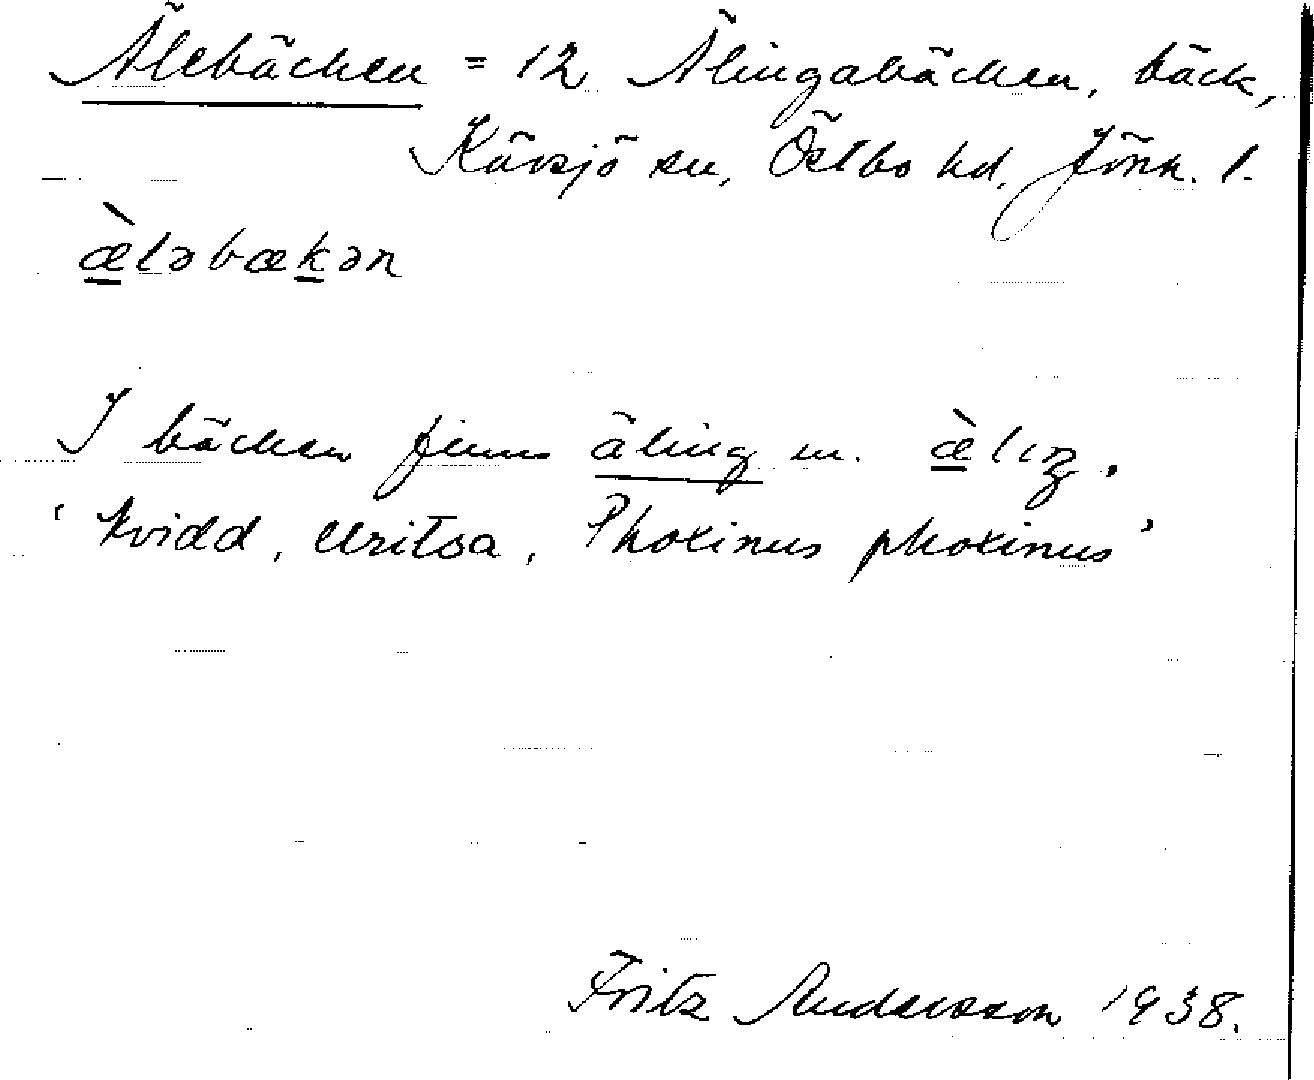 Älebäcken = 12 Älingabäcken, bäck,
Kävsjö sn, Östbo hd, Jönk. l.
æ̀ləbækən
I bäcken finns äling m. æ̀lıŋ.
'kvidd, elritsa, Phoxinus phoxinus'
Fritz Andersson 1938.